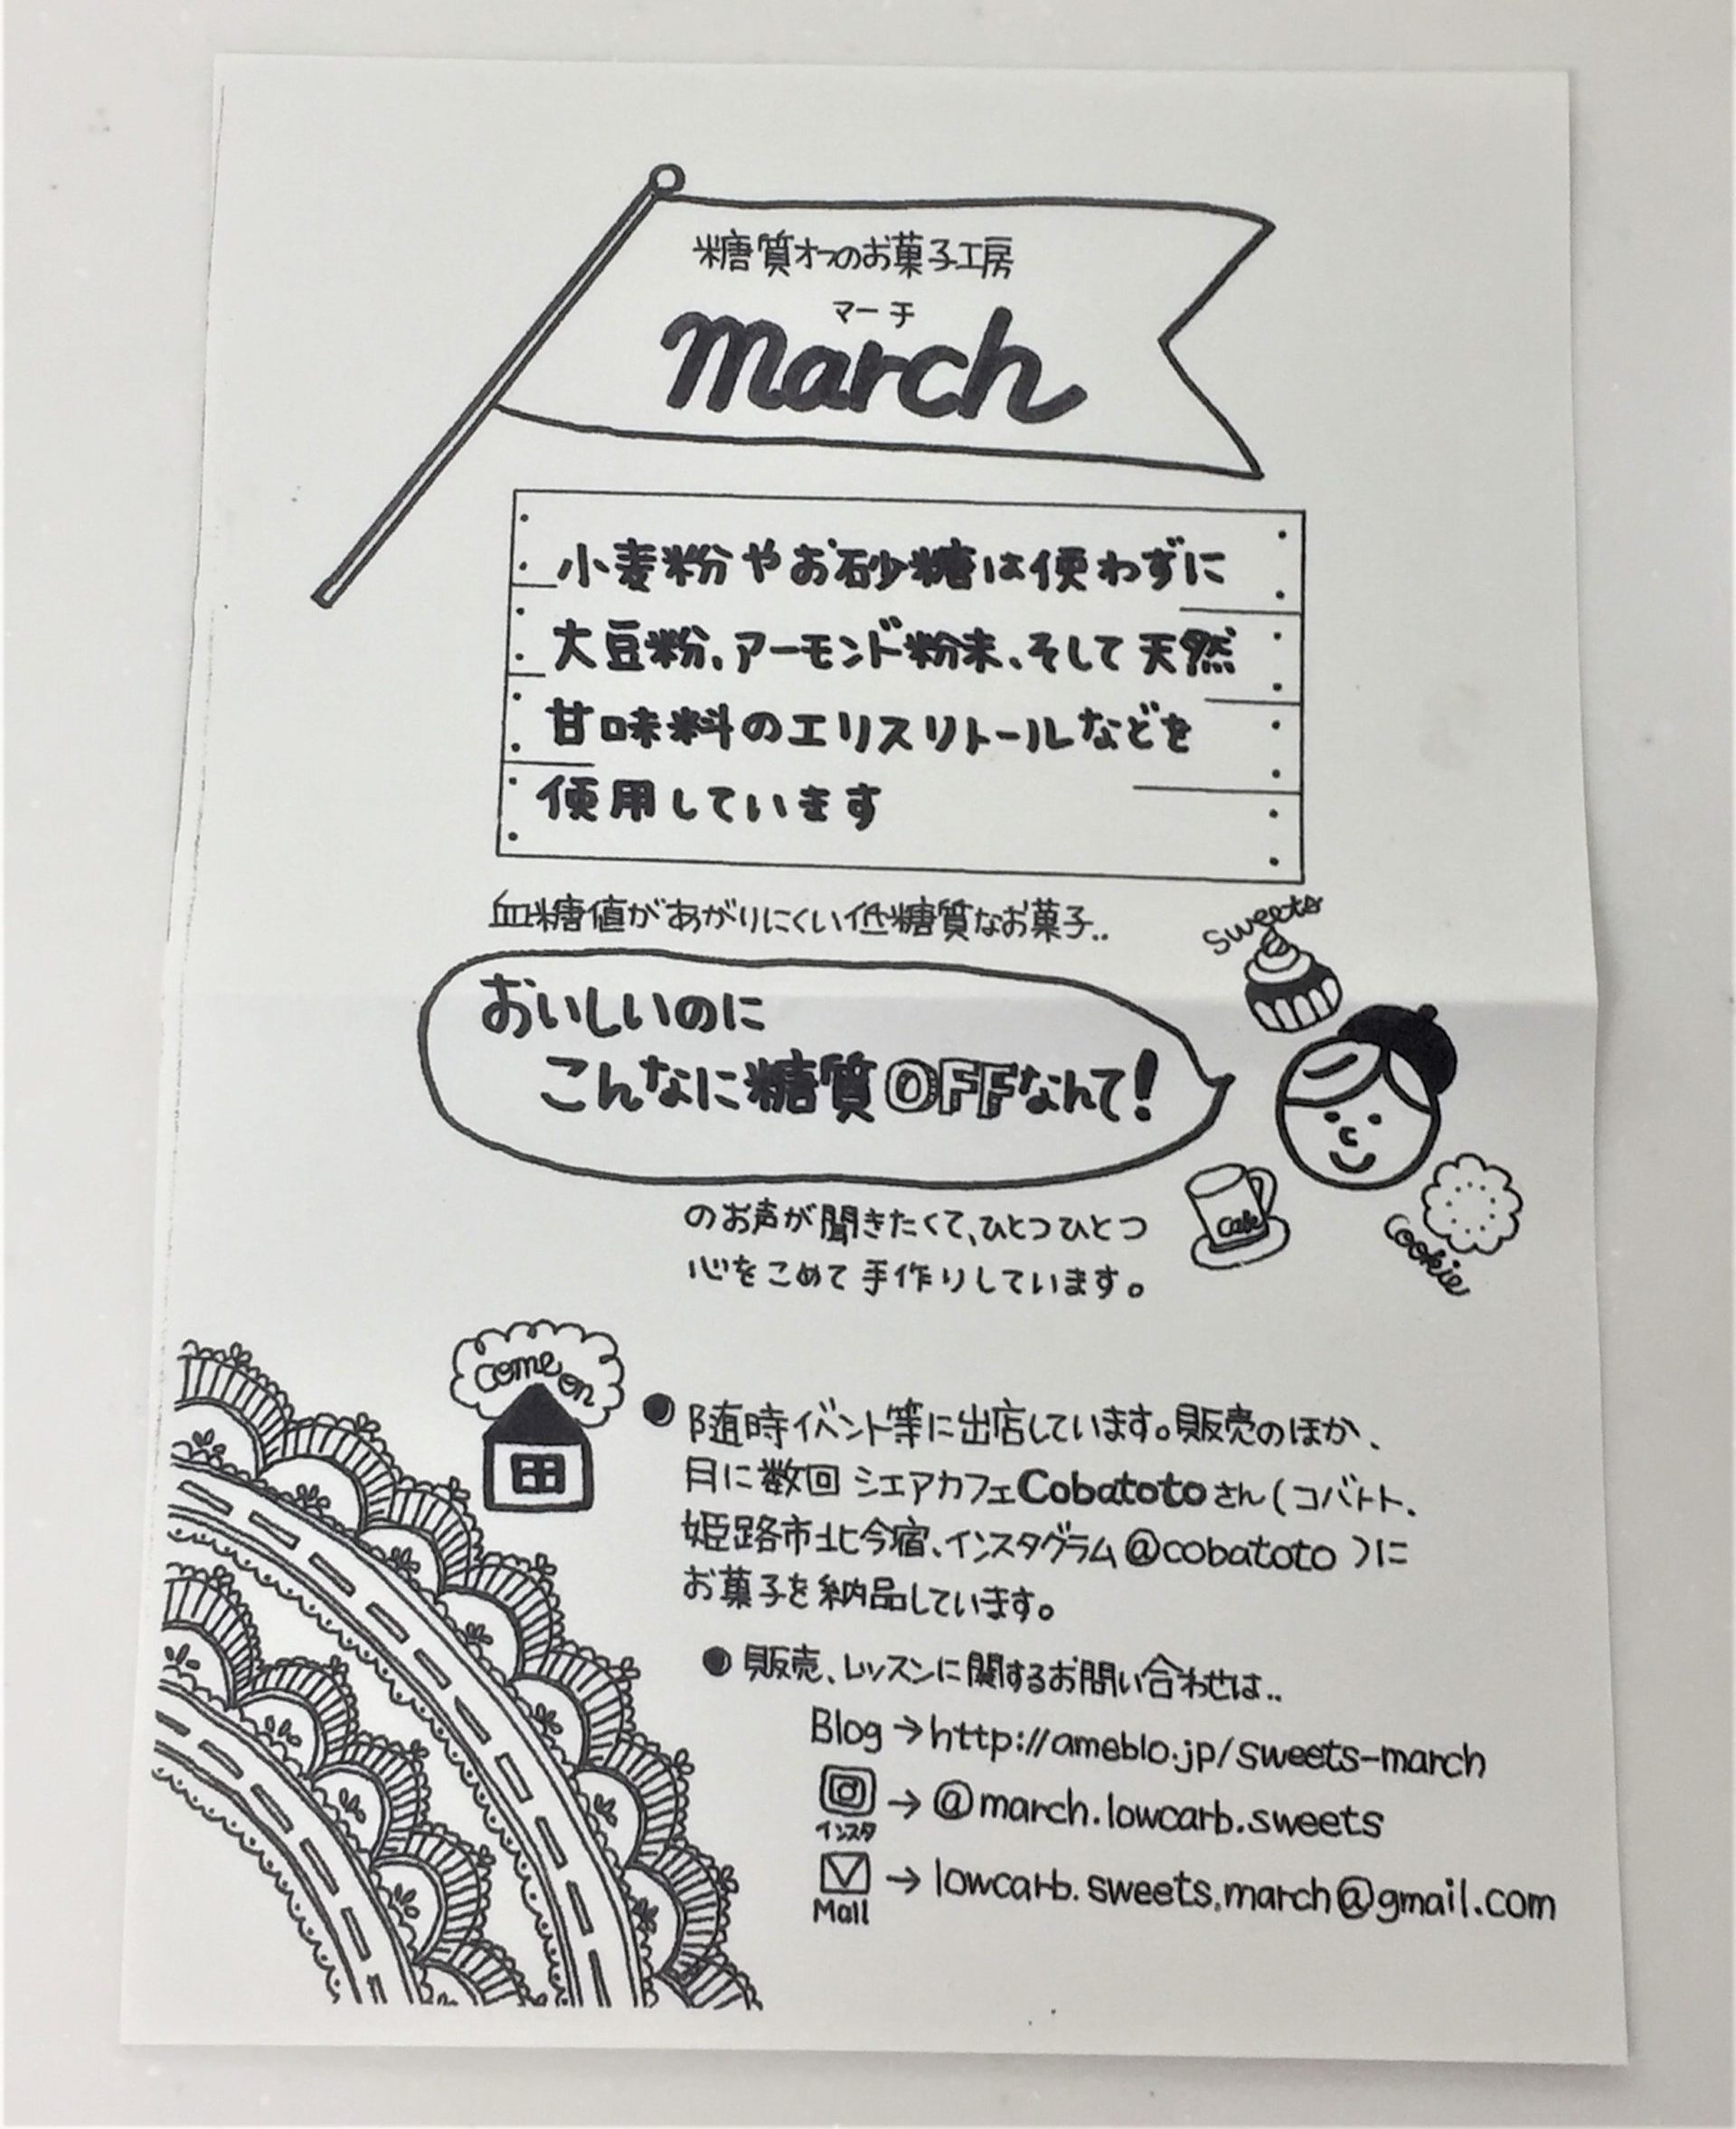 糖質オフのお菓子工房
マーチ
march
小麦粉やお砂糖は使わずに
大豆粉、アーモンド粉末、そして天然
甘味料のエリスリトールなどを
使用しています
血糖値があがりにくい低糖質なお菓子..
sweets
おいしいのに
こんなに糖質OFFなんて!
cafe
cookie
のお声が聞きたくて、ひとつひとつ
心をこめて手作りしています。
come on
●随時イベント等に出店しています。販売のほか、
月に数回 シェアカフェCobatotoさん(コバトト、
姫路市北今宿、インスタグラム@cobatoto)に
お菓子を納品しています。
●販売、レッスンに関するお問い合わせは..
Blog→http://ameblo.jp/sweets-march
インスタ→@march.lowcarb.sweets
Mail→lowcarb.sweets.march@gmail.com